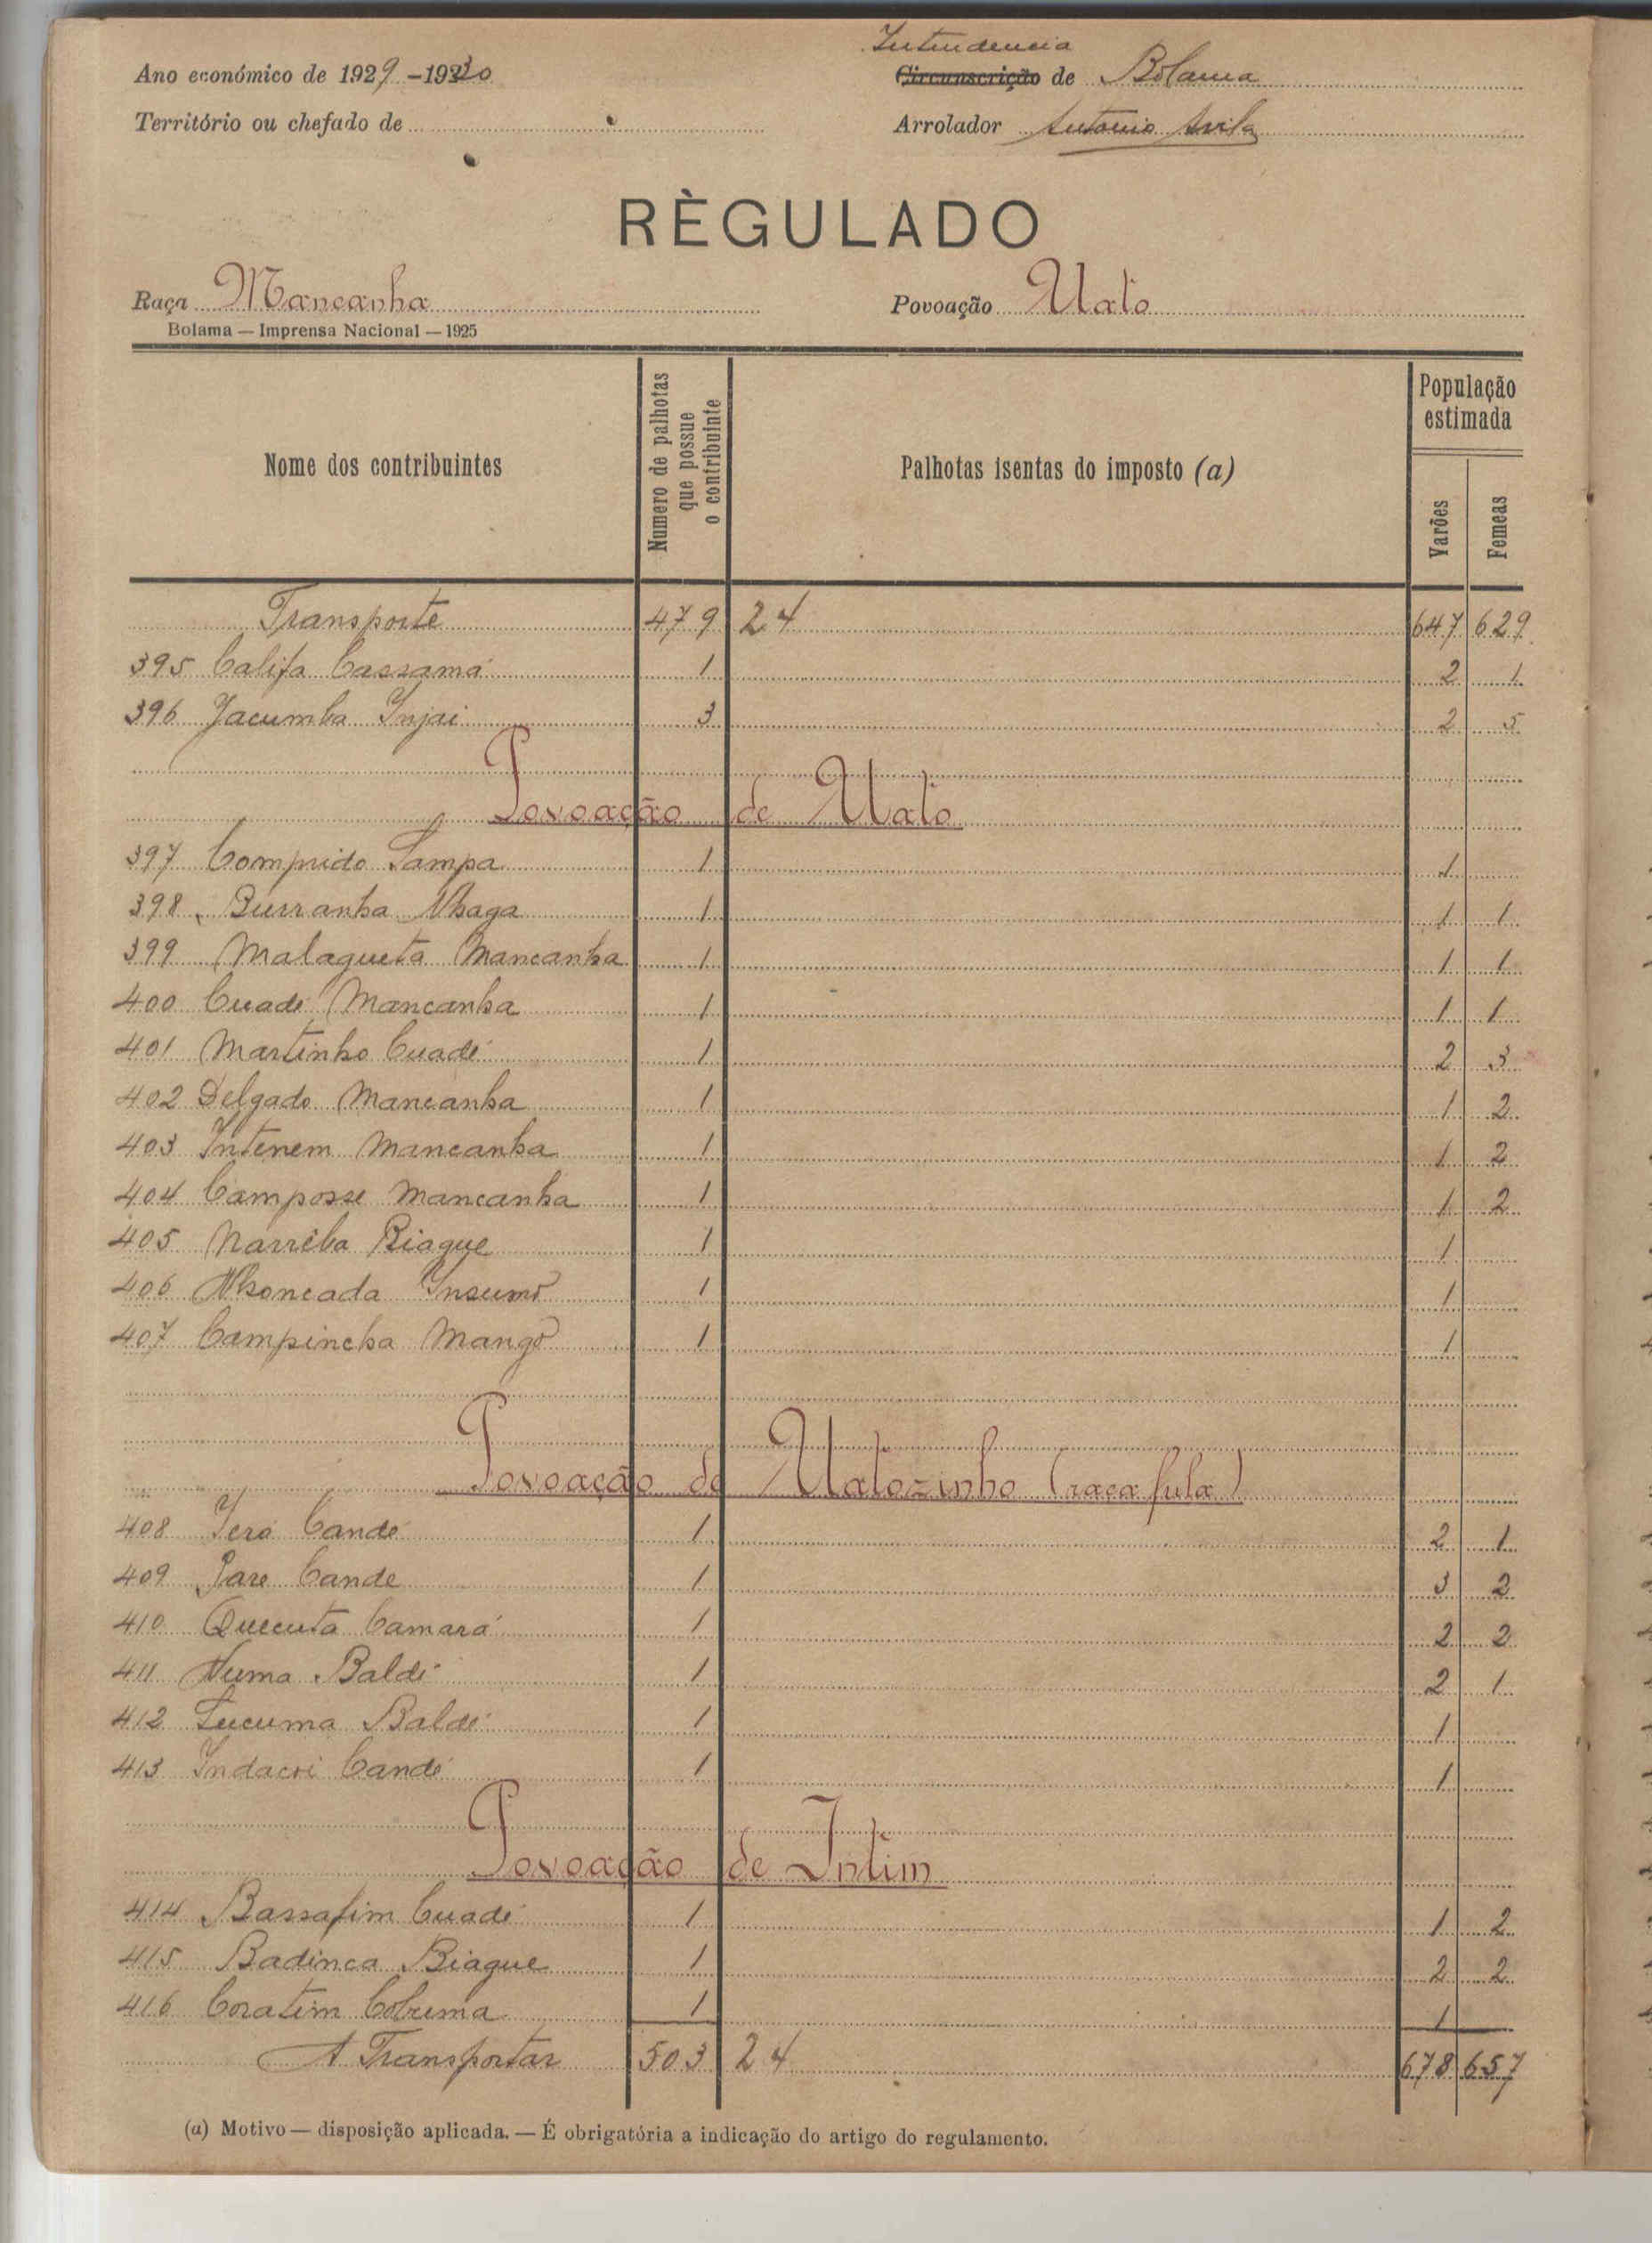 Intendencia
Ano económico de 1929-1930 Circunscrição de Bolama
Território ou chefado de Arrolador Antonio Avila
RÈGULADO
Raça Mancanha Povoação Uato
Bolama — Imprensa Nacional — 1925
Nome dos contribuintes Numero de palhotas que possue o contribuinte Palhotas isentas do imposto (a) População estimada Varões Femeas
Transporte 479 24 647 629
395 Califa Cassamá 1 2 1
396 Jacumba Injai 3 2 5
Povoação de Uato
397 Comprido Sampa 1 1
398 Burranha Nhaga 1 1 1
399 Malagueta Mancanha 1 1 1
400 Cuadé Mancanha 1 1 1
401 Martinho Cuadé 1 2 3
402 Delgado Mancanha 1 1 2
403 Intenem Mancanha 1 1 2
404 Camposse Mancanha 1 1 2
405 Narriba Biague 1 1
406 Nhoncada Insumó 1 1
407 Campincha Mangó 1 1
Povoação de Uatozinho (raça fula)
408 Iero Candé 1 2 1
409 Pare Cande 1 3 2
410 Quecuta Camará 1 2 2
411 Numa Baldé 1 2 1
412 Lucuma Baldé 1 1
413 Indacri Candé 1 1
Povoação de Intim
414 Bassafim Cuadé 1 1 2
415 Badinca Biague 1 2 2
416 Coratim Cobuma 1 1
A Transportar 503 24 678 657
(a) Motivo — disposição aplicada. — É obrigatória a indicação do artigo do regulamento.